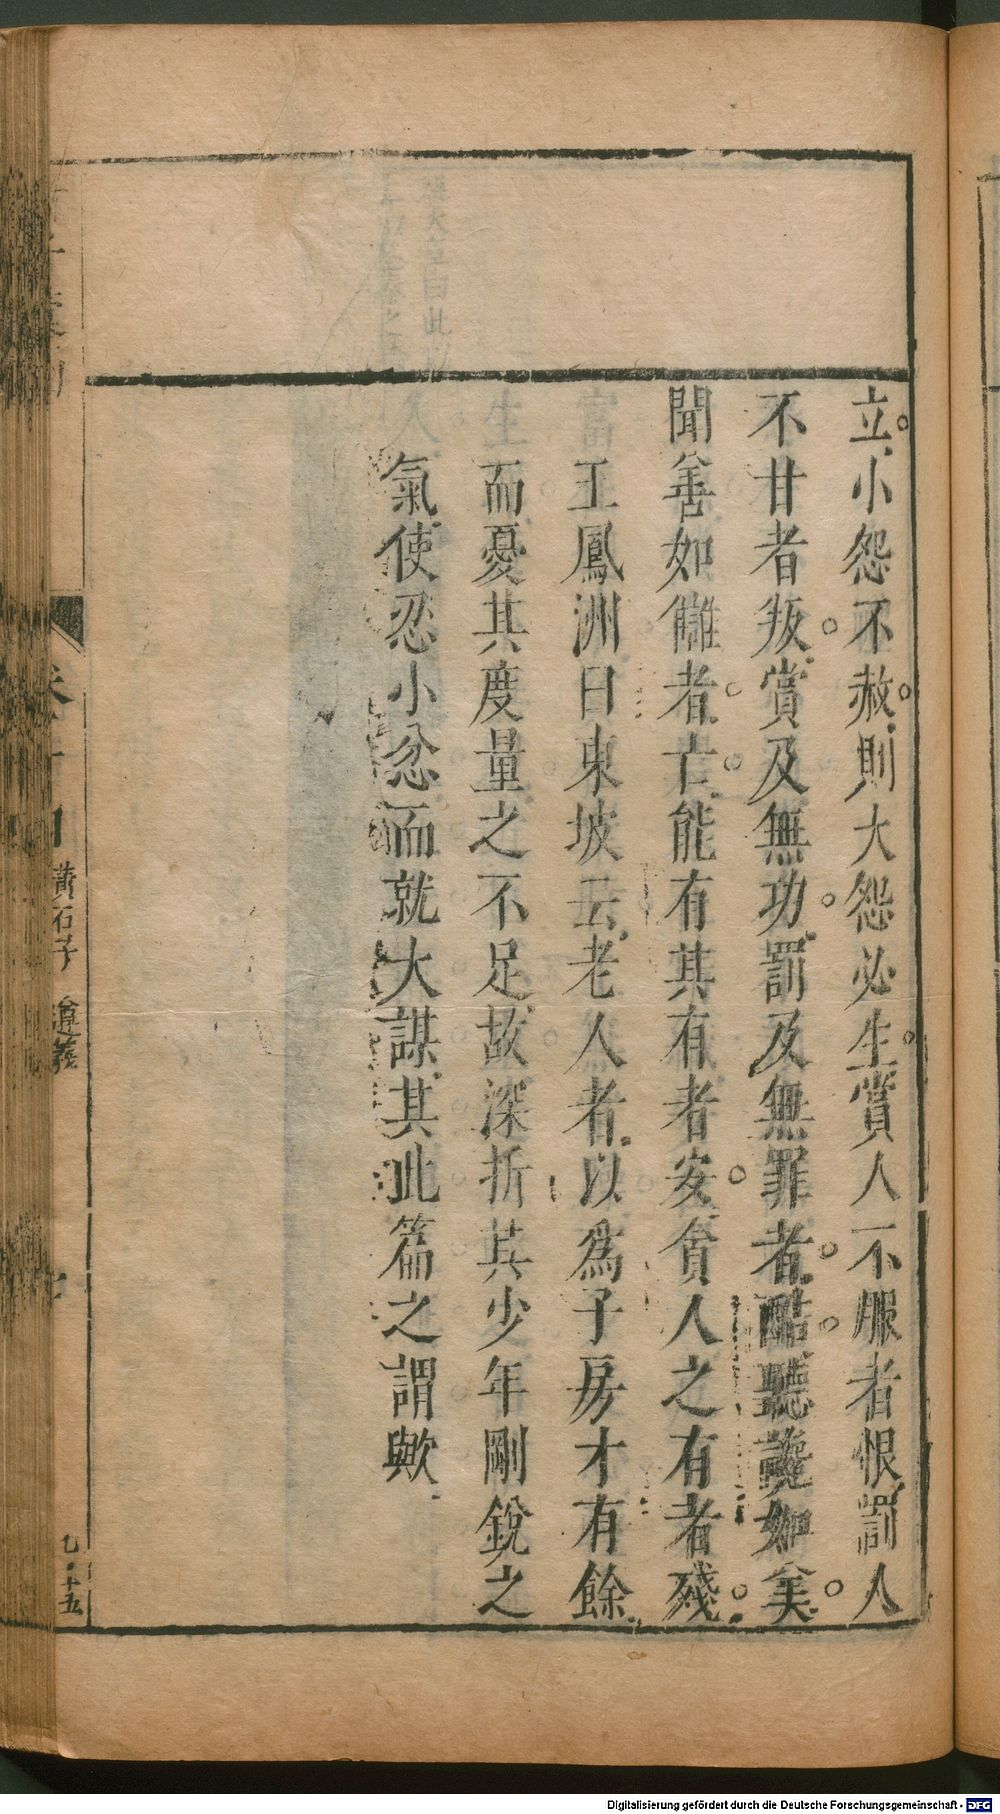 立小怨不赦則大怨必生賞人不服者恨罰人
不甘者叛賞及無功罰及無罪者酷聽讒如美
聞善如讎者亡能有其有者安貪人之有者殘
王鳳洲曰東坡云老人者以爲子房才有餘
而憂其度量之不足故深折其少年剛銳之
氣使忍小忿而就大謀其此篇之謂歟
黃石子 遵義
七
七十五
Digitalisierung gefördert durch die Deutsche Forschungsgemeinschaft - DFG